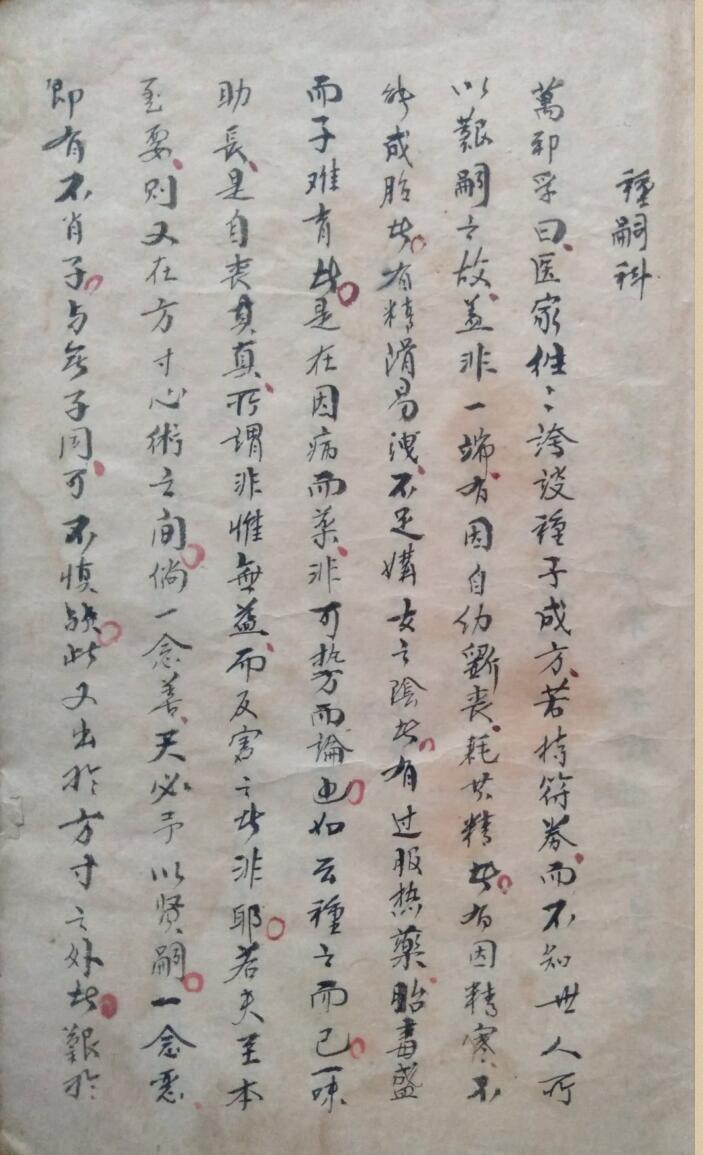 種嗣科
萬邦孚曰医家徃〻誇設種子成方若持符券而不知世人所
以艱嗣之故盖非一端有因自幼斵丧耗其精者有因精寒不
能成胎者有精滑易洩不足媾女之陰者有过服热藥胎毒盛
而子难育者是在因病而薬非可执方而論也如云種之而已一味
助長是自丧其真所謂非惟無益而反害之者非耶若夫至本
至要则又在方寸心術之间倘一念善天必予以贤嗣一念悪
即有不肖子与無子同可不慎欤此又出於方寸之外者艱於